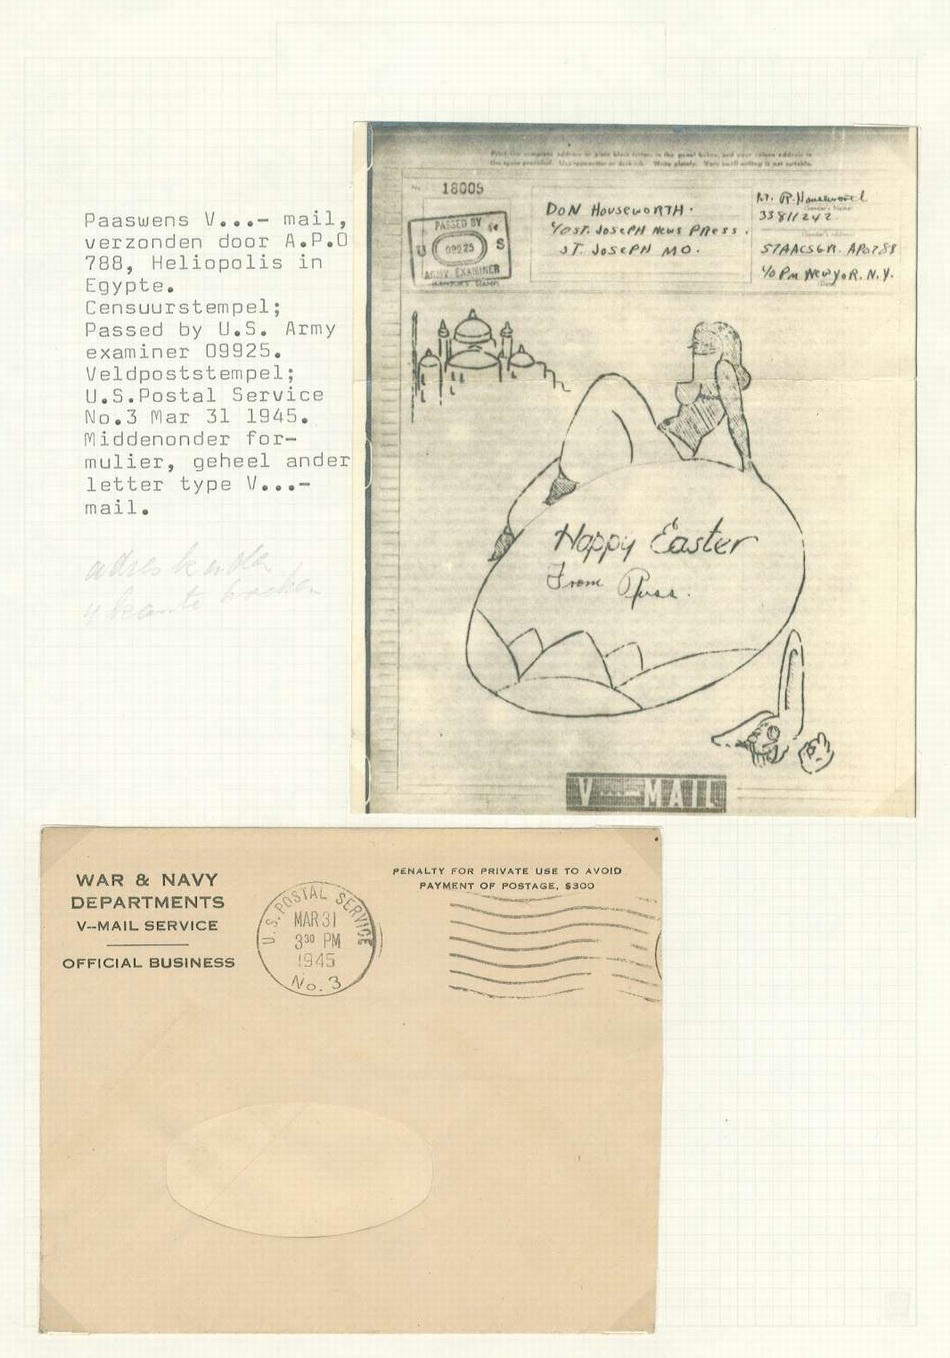 Paaswens V...- mail,
verzonden door A.P.O
788, Heliopolis in
Egypte.
Censuurstempel;
Passed by U.S. Army
examiner 09925.
Veldpoststempel;
U.S.Postal Service
No.3 Mar 31 1945.
Middenonder for-
mulier, geheel ander
letter type V...-
mail.
No. 18009
PASSED BY
U 09925 S
ARMY EXAMINER
(CENSOR'S STAMP)
DON HOUSEWORTH.
℅ ST. JOSEPH NEWS PRESS.
ST. JOSEPH MO.
R. Houseworth
33811242
(Sender's address)
APO 788
℅ PM NEW YORK. N.Y.
(Date)
Happy Easter
From Russ.
V...-MAIL
WAR & NAVY
DEPARTMENTS
V--MAIL SERVICE
OFFICIAL BUSINESS
U.S. POSTAL SERVICE
MAR 31
3 30 PM
1945
No. 3
PENALTY FOR PRIVATE USE TO AVOID
PAYMENT OF POSTAGE, $300